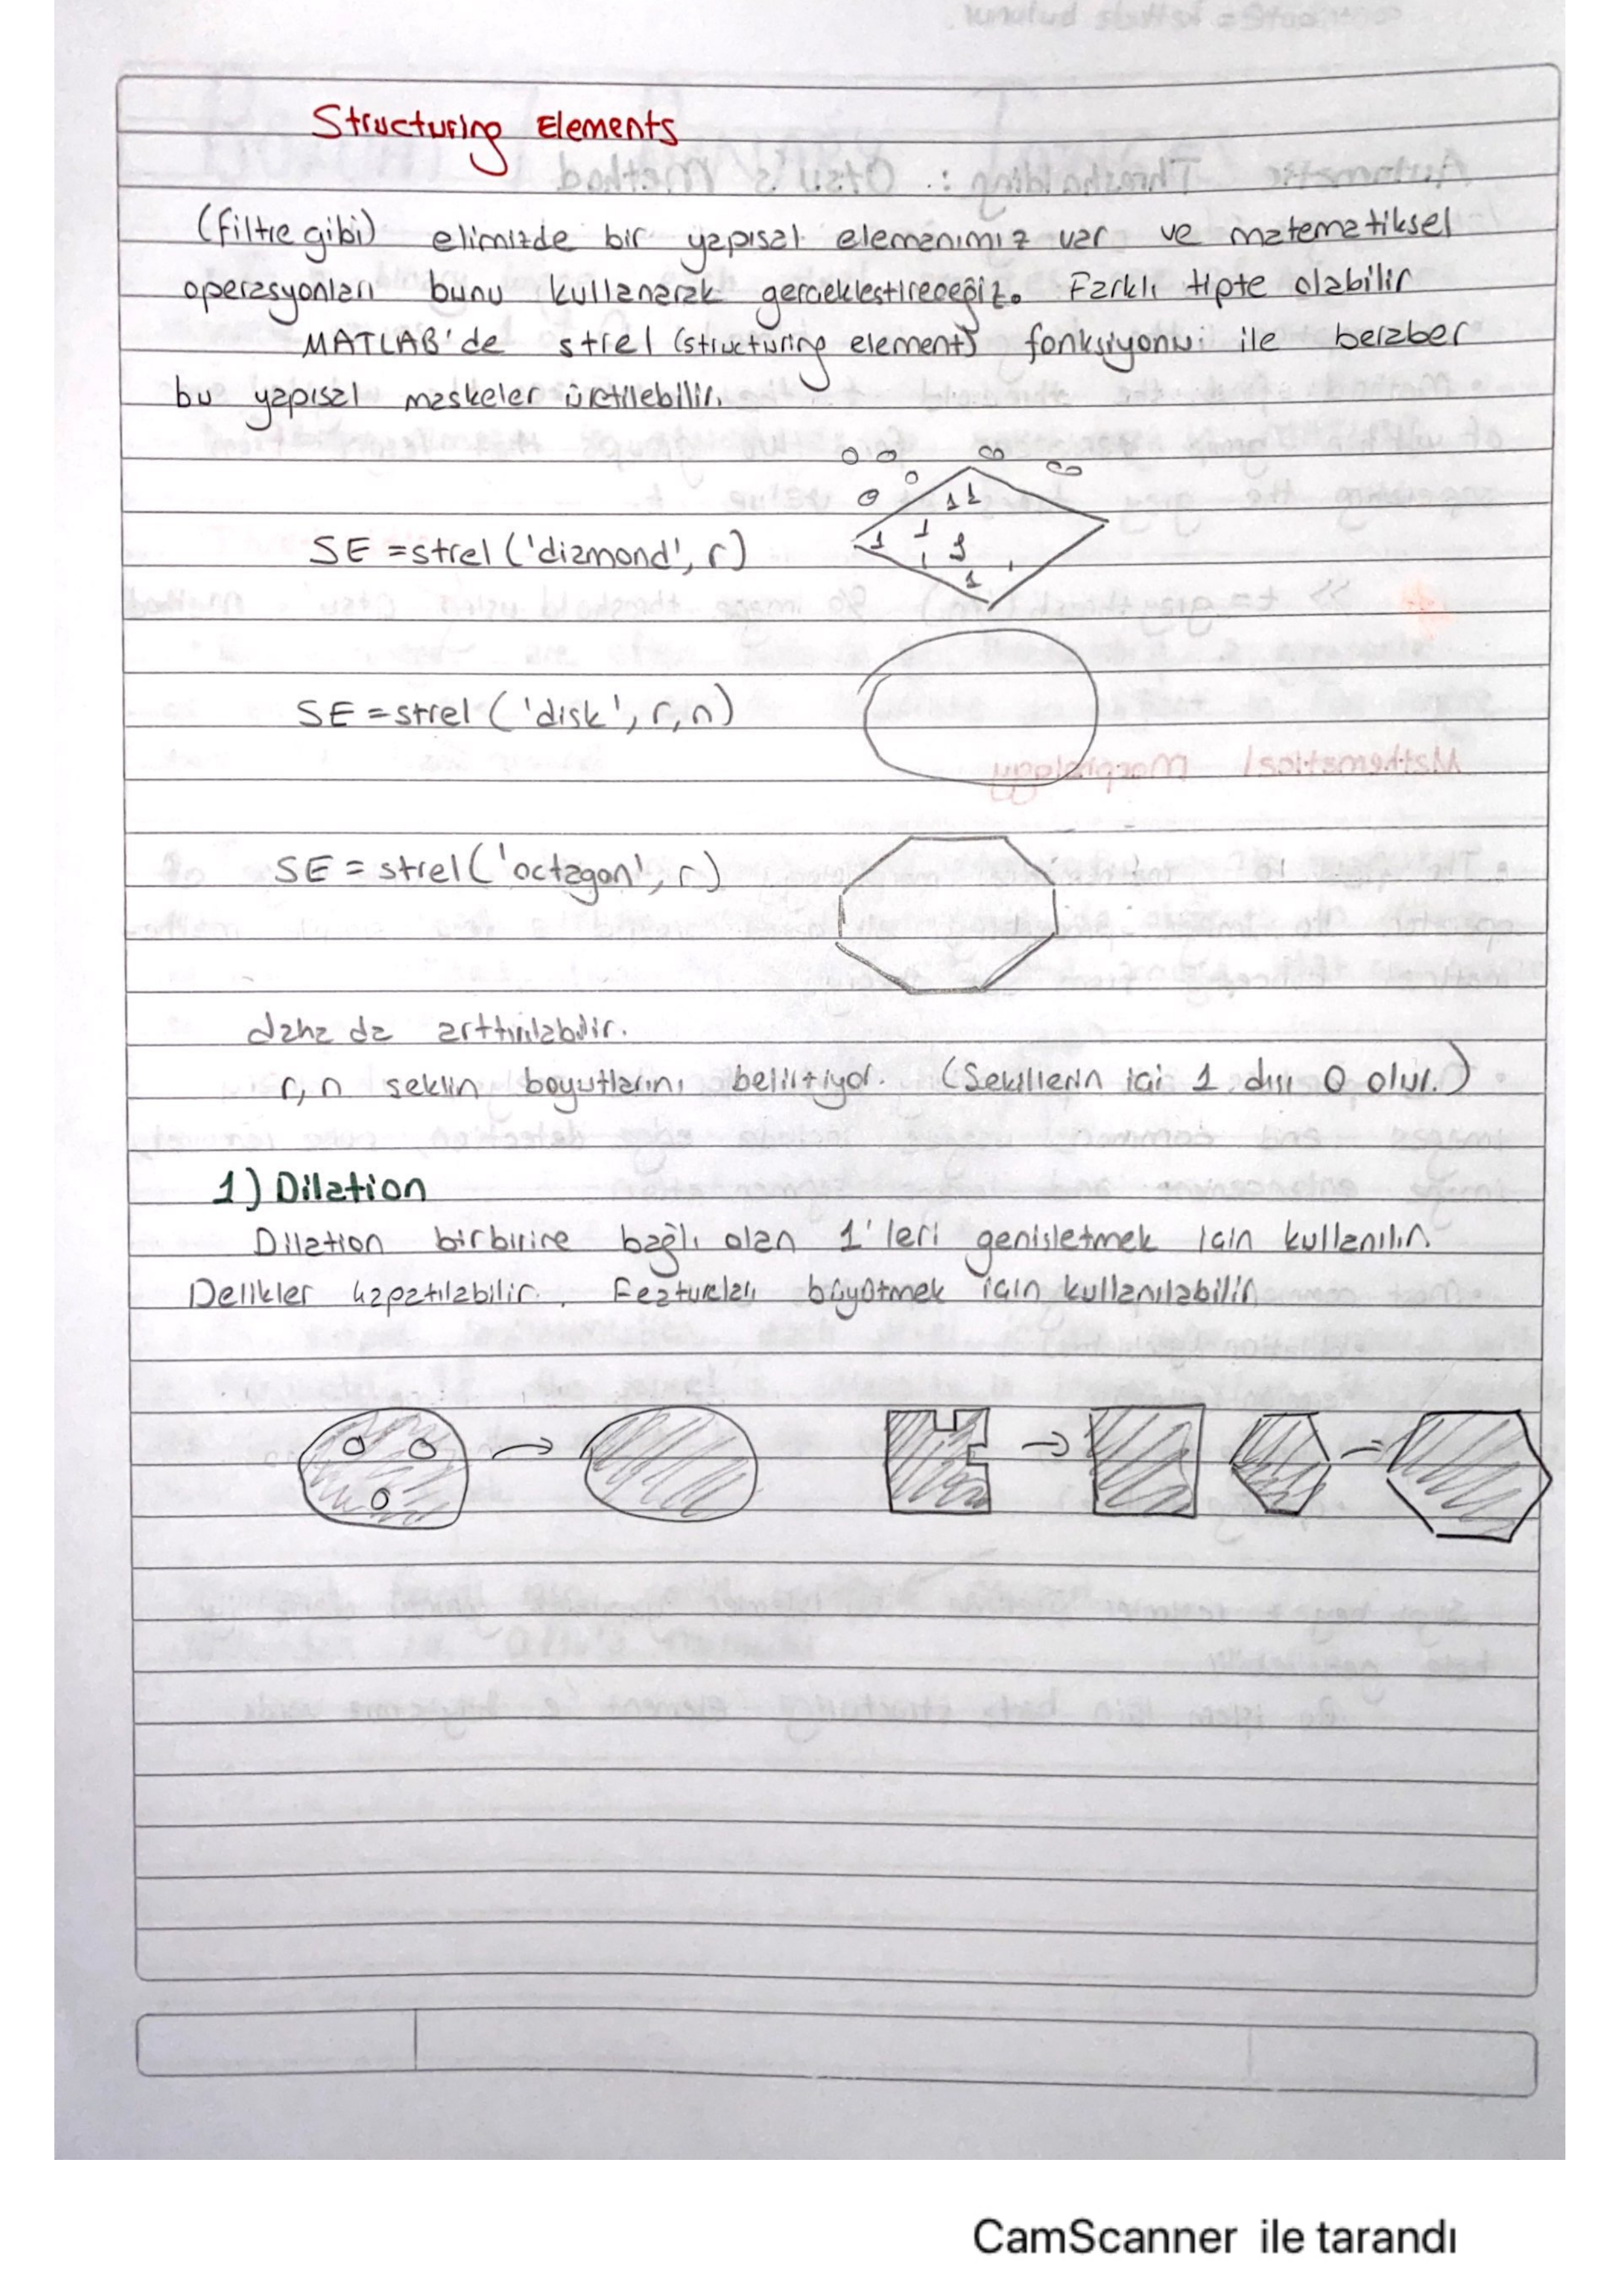 Structuring Elements
(filtre gibi) elimizde bir yapısal elemanımız var ve matematiksel
operasyonları bunu kullanarak gerceklestireceğiz. Farklı tipte olabilir
MATLAB'de strel (structuring element) fonksiyonu ile beraber
bu yapısal maskeler üretilebilir.
SE = strel ('diamond', r)
1 1
1 1
1
1
SE = strel ('disk', r, n)
SE = strel ('octagon', r)
daha da arttırılabilir.
r, n seklin boyutlarını belirtiyor. (Sekillerin ici 1, dısı 0 olur.)
1) Dilation
Dilation birbirine bağlı olan 1'leri genisletmek icin kullanılır.
Delikler kapatılabilir. Featureları büyütmek icin kullanılabilir
CamScanner ile tarandı